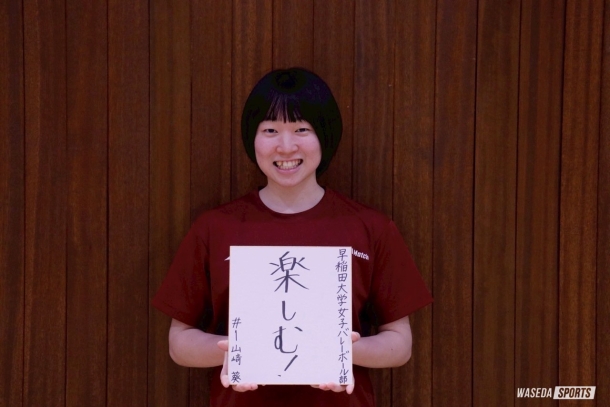 早稲田大学女子バレーボール部
楽しむ!
#1 山崎 葵
Match
WASEDA SPORTS